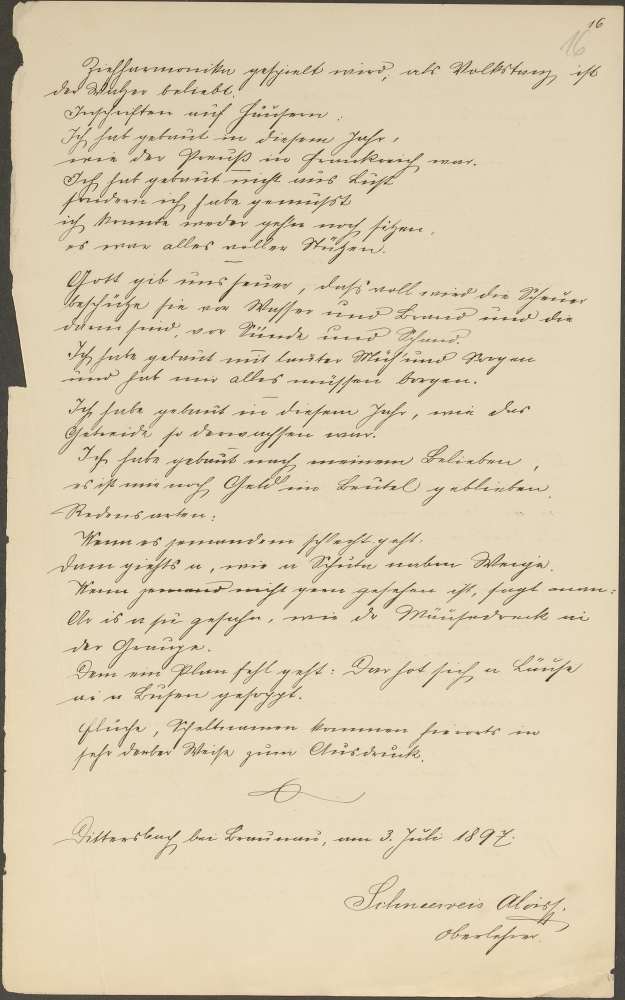 16
16
Ziehharmonika gespielt wird, als Volkstanz ist
der Walzer beliebt.
Inschriften auf Häusern:
Ich hab gebaut in diesem Jahr,
wie der Preuß in Frankreich war.
Ich hab gebaut nicht aus Lust
sondern ich habe gemußt
ich konnte weder gehen noch sitzen,
es war alles voller Stützen.
Gott gib uns heuer, daß voll wird die Scheuer
beschütze sie vor Wasser und Brand und die
darin sind, vor Sünde und Schand.
Ich habe gebaut mit lauter Müh und Sorgen
und hab mir alles müssen borgen.
Ich habe gebaut in diesem Jahr, wie das
Getreide so derwachsen war.
Ich habe gebaut nach meinem Belieben,
es ist mir noch Geld im Beutel geblieben.
Redensarten:
Wenn es jemandem schlecht geht.
Dam giehts a, wie a Schuta nabm Weige.
Wenn jemand nicht gern gesehen ist, sagt man:
Ar is a su gesahn, wie dr Mäusedreck ai
der Graupe.
Dem ein Plan fehl geht: Dar hot sich a Läuse
ai a Busen gesoppt.
Flüche, Scheltnamen kommen hierorts in
sehr derber Weise zum Ausdruck.
Dittersbach bei Braunau, am 3. Juli 1897.
Schneeweis Alois
Oberlehrer.